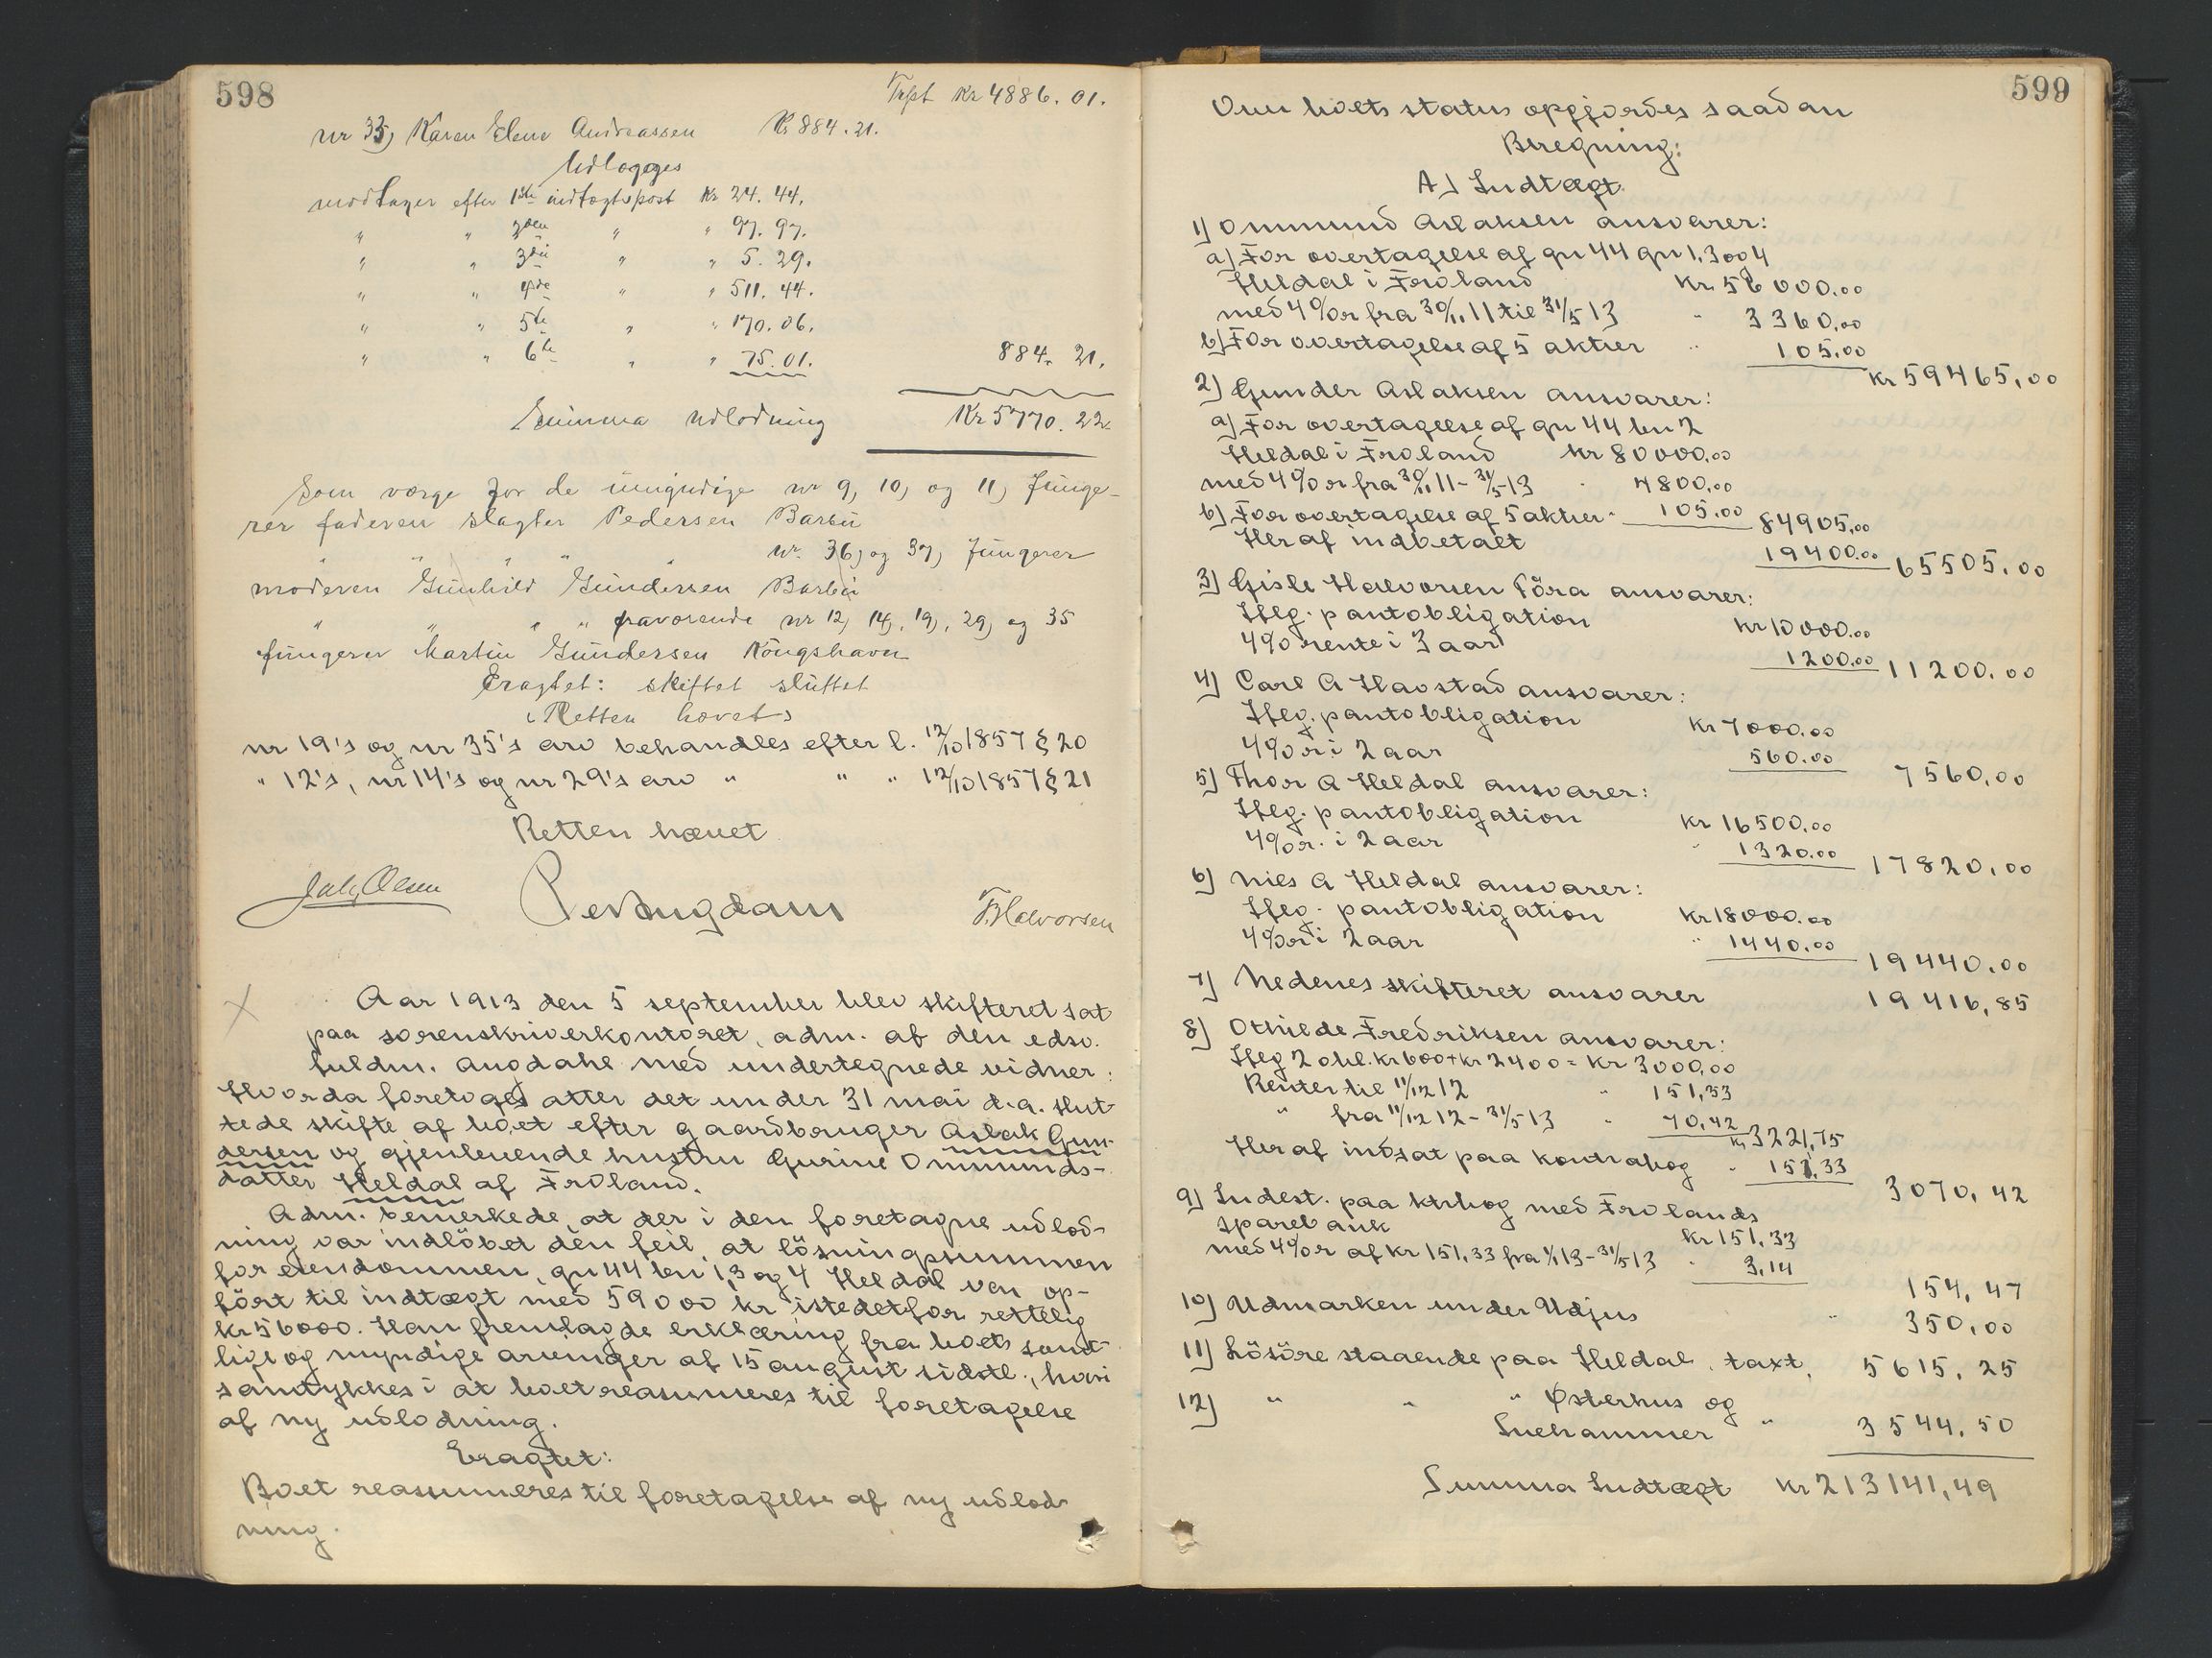 598
Trpt Kr 4886.01.
nr 35) Karen Elene Andreassen Kr 884.21.
Udlægges
modtager efter 1ste indtægtspost Kr 24.44.
" " 2den " " 97.97.
" " 3die " " 5.29.
" " 4de " " 511.44.
" " 5te " " 170.06.
" " 6te " " 75.01. 884.21.
Summa udlodning Kr 5770.22
Som værge for de umyndige nr 9, 10, og 11, funge-
rer faderen slagter Pedersen Barbu
" " " " nr. 36, og 37, fungerer
moderen Gunhild Gundersen Barbu
" " " " fraværende nr 12, 14, 19, 29, og 35
fungerer Martin Gundersen Kongshavn
Eragtet: skiftet sluttet
Retten hævet
nr 19's og nr 35's arv behandles efter l. 12/10 1857 § 20
" 12's, nr 14's og nr 29's arv " " " 12/10 1857 § 21
Retten hævet
Jak. Olsen Per Augdahl T. Halvorsen
Aar 1913 den 5 september blev skifteret sat
paa sorenskriverkontoret, adm. af den edsv.
fuldm. Augdahl med undertegnede vidner:
Hvorda foretoges atter det under 31 mai d.a. slut-
tede skifte af boet efter gaardbruger Aslak Gun-
dersen og gjenlevende hustru Gurine Ommunds-
datter Heldal af Froland.
Adm. bemerkede, at der i den foretagne udlod-
ning var indløbet den feil, at løsningssummen
for eiendommen, gn 44 bn 1,3 og 4 Heldal var op-
ført til indtægt med 59000 kr istedetfor rettelig
kr 56000. Han fremlagde erklæring fra boets samt-
lige og myndige arvinger af 15 august sidstl., hvori
samtykkes i at boet reassumeres til foretagelse
af ny udlodning.
Eragtet:
Boet reassumeres til foretagelse af ny udlod-
ning.
599
Ovnu boets status opgjordes saadan
Beregning:
A) Indtægt.
1) Ommund Aslaksen ansvarer:
a) For overtagelse af gn 44 gn 1, 3 og 4
Heldal i Froland Kr 56000.00
med 4% r fra 30/11 11 til 31/5 13 " 3360.00
b) For overtagelse af 5 aktier " 105.00
Kr 59465,00
2) Gunder Aslaksen ansvarer:
a) For overtagelse af gn 44 bn 2
Heldal i Froland Kr 80000.00
med 4% r fra 30/11 11 - 31/5 - 13 " 4800.00
b) For overtagelse af 5 aktier " 105.00 84905,00
Heraf indbetalt 19400.00 65505.00
3) Gisle HalvorsenFøra ansvarer:
Iflg. pantobligation Kr 10000.00
4% rente i 3 aar 1200.00 11200.00
4) Carl A Havstad ansvarer:
Iflg. pantobligation Kr 7000.00
4% r i 2 aar 560.00 7560,00
5) Thor A Heldal ansvarer:
Iflg. pantobligation Kr 16500.00
4% r. i 2 aar " 1320.00 17820,00
6) Nils A Heldal ansvarer:
Iflg. pantobligation Kr 18000.00
4% r i 2 aar " 1440.00 19440.00
7) Nedenes skifteret ansvarer 19416,85
8) Othilde Fredriksen ansvarer:
Iflg 2 obl. kr 600 + kr 2400 = Kr 3000,00
Renter til 11/12 12 " 151,33
" fra 11/12 12 - 31/5 - 13 " 70,42
Kr 3221,75
Heraf indsat paa kontrabog " 151,33
3070,42
9) Indest. paa ktrbog med Frolands
sparebank Kr 151,33
med 4% r af kr 151,33 fra 1/1 13 - 31/5 13 " 3,14
154,47
10) Udmarken under Udjus " 350,00
11) Løsøre staaende paa Heldal, taxt. 5615,25
12) " " " Østerhus og
Snehammer " 3544,50
Summa Indtægt Kr 213141,49